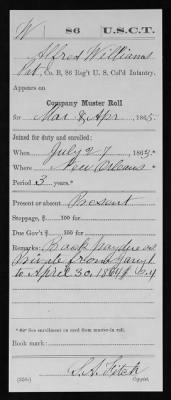 W 86 U.S.C.T.
Alfred Williams
Pvt, Co. B, 86 Reg't U. S. Col'd Infantry.
Appears on
Company Muster Roll
for Mar & Apr, 1865.
Joined for duty and enrolled:
When July 27, 1863.*
Where New Orleans *
Period 3 years.*
Present or absent Present
Stoppage, $ 100 for
Due Gov't $ 100 for
Remarks: Back pay due as
Private from
to April 30, 1864
*See enrollment on card from muster-in roll.
Book mark:
S. A. Fitch
(358c) Copyist.